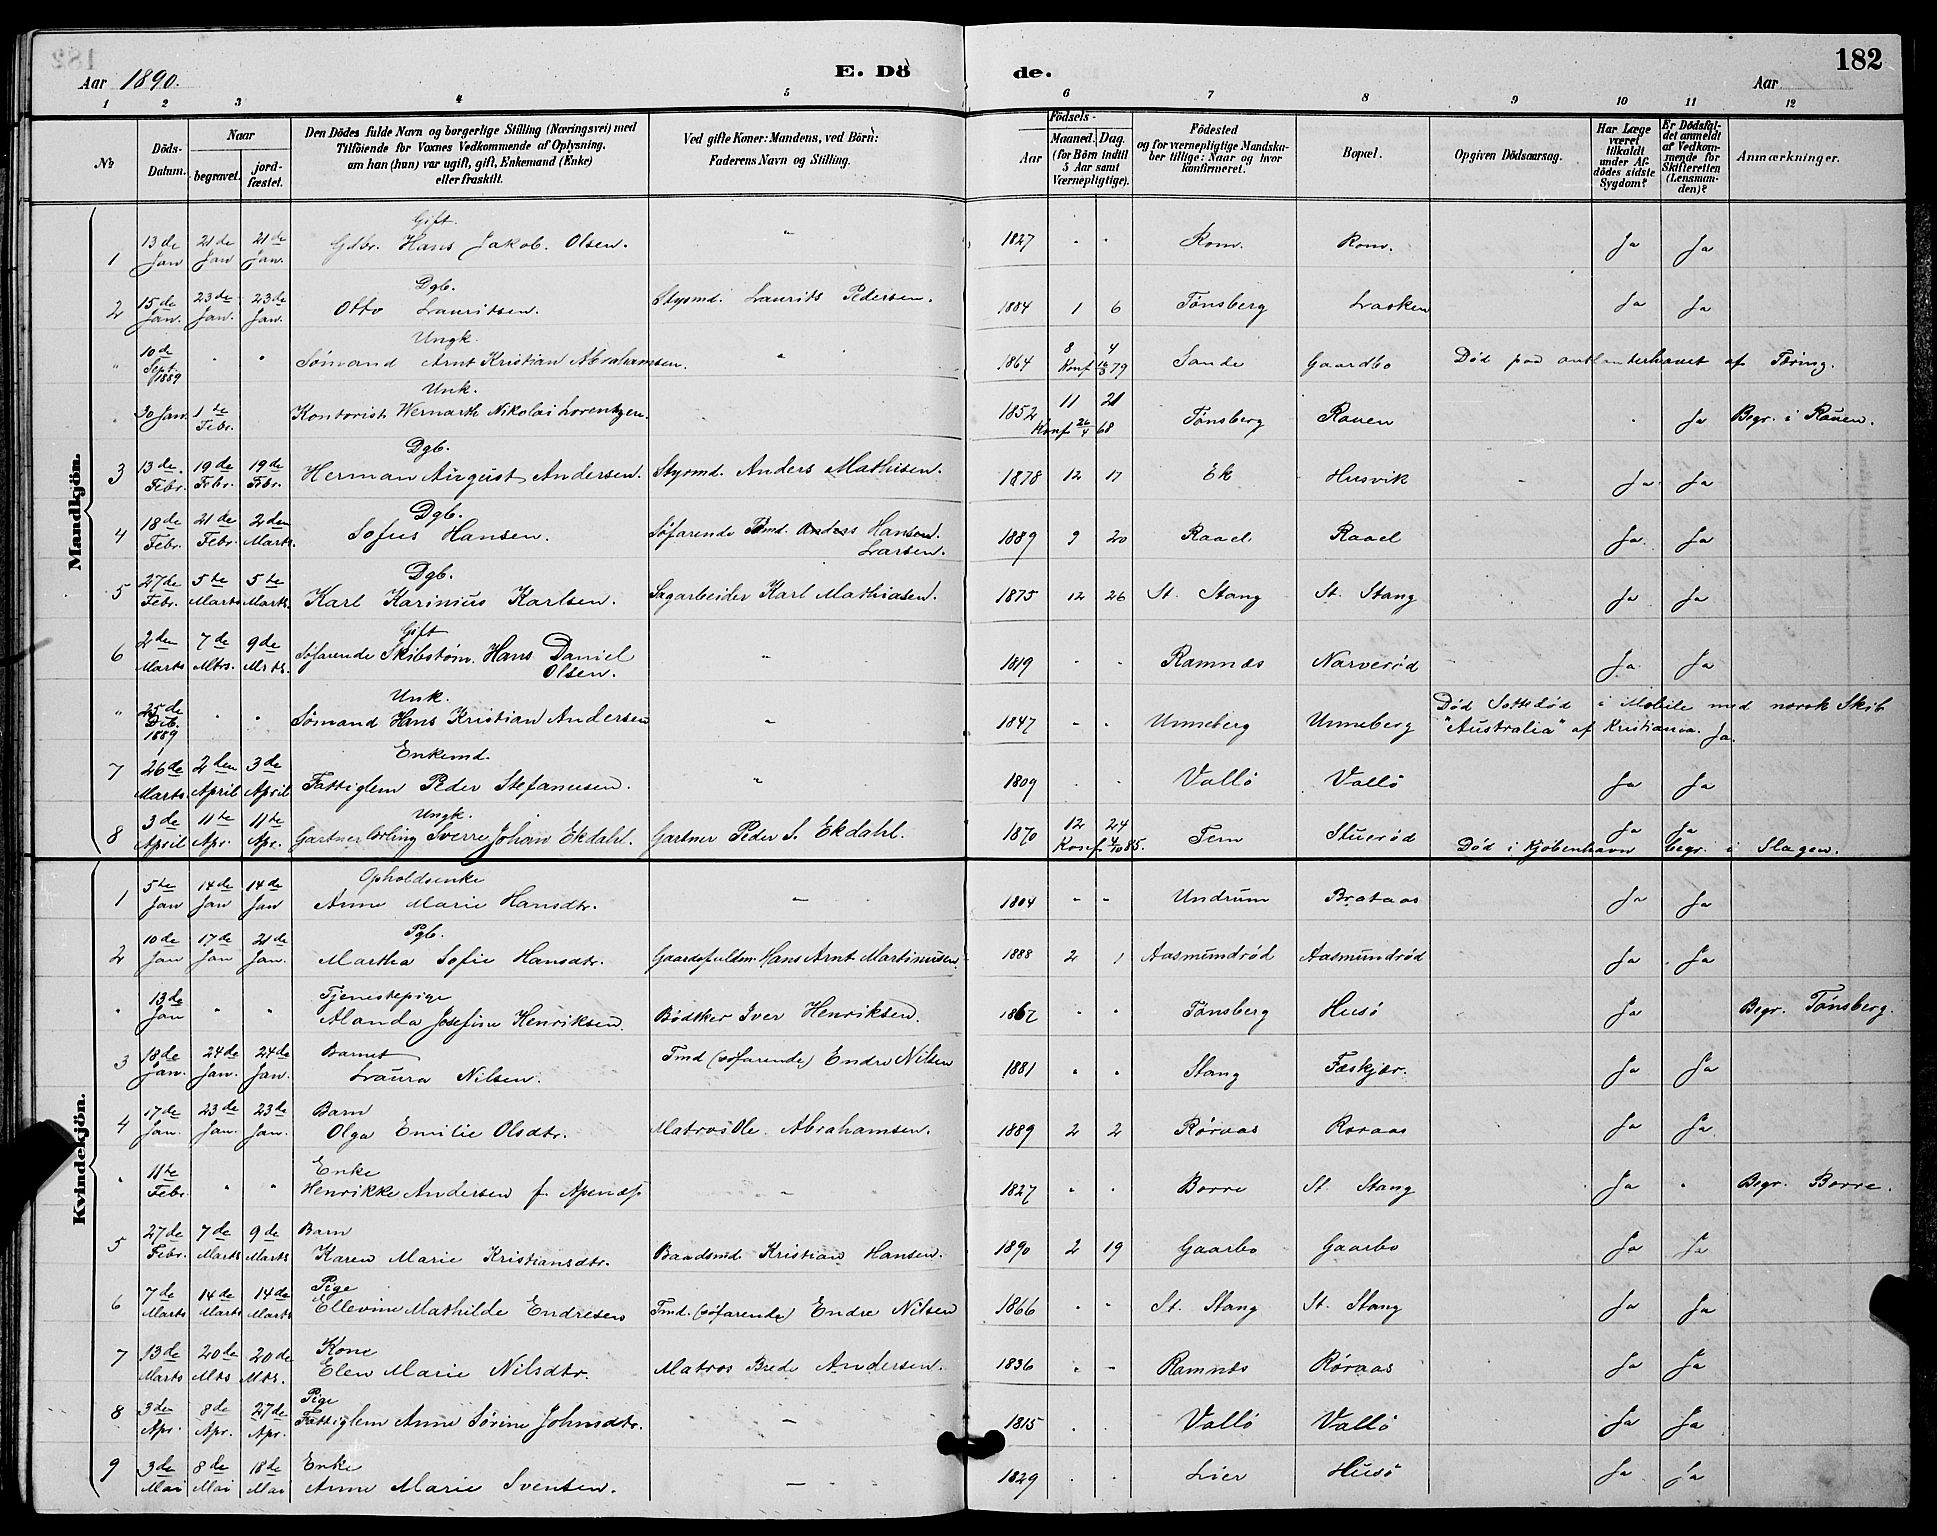 182
Aar 1890.
E. Dö de.
Aar
1 2 3 4 5 6 7 8 9 10 11 12
No
Döds-Datum.
Naar
begravet.
jord-fæstet.
Den Dödes fulde Navn og borgerlige Stilling (Næringsvei) med
Tilföiende for Voxnes Vedkommende af Oplysning,
om han (hun) var ugift, gift, Enkemand (Enke)
eller fraskilt.
Ved gifte Koner: Mandens, ved Börn:
Faderens Navn og Stilling.
Födsels-
Aar
Maaned. Dag.
(for Börn indtil
5 Aar samt
Værnepligtige).
Födested
og for værnepligtige Mandska-
ber tillige: Naar og hvor
konfirmeret.
Bopæl.
Opgiven Dödsaarsag.
Har Læge
været
tilkaldt
under Af-
dödes sidste
Sygdom?
Er Dödsfal-
det anmeldt
af Vedkom-
mende for
Skifteretten
(Lensman-
den)?
Anmærkninger.
Mandkjön.
1 13de Jan 21de Jan 21de Jan. Gift. Gdbr. Hans Jakob Olsen. " 1827 " " Rom. Rom. Ja Ja
2 15de Jan. 23de Jan. 23de Jan. Dgb. Otto Lauritsen. Stysmd. Laurits Pedersen. 1884 1 6 Tønsberg Lasken Ja Ja
" 10de Sept. 1889 " " Ungk. Sømand Arnt Kristian Abrahamsen. " 1864 8 4 Konf 79 Sande Gaardbo Død paa af
" 30 Jan. 1te Febr. Unk. Kontorist Wernarth Nikolai Lorentzen. 1852 11 21 Konf 26/4 68 Tønsberg Rauen " Ja Begr. i Rauen.
3 13de Febr. 19de Febr. 19de Febr. Dgb. Herman August Andersen. Stysmd. Anders Mathisen. 1878 12 17 Ek Husvik - Ja Ja
4 18de Febr. 21de Febr. 2den Marts. Dgb. Sofus Hansen. Søfarende Tømd. Anders Hansen. Larsen. 1889 9 20 Raael Raael Ja Ja
5 27de Febr. 5te Marts 5te Marts. Dgb. Karl Karinius Karlsen. Sagarbeider Karl Mathiasen. 1875 12 26 St. Stang St. Stang Ja Ja
6 2den Marts 7de Mts. 9de Mrts. Gift Søfarende Skibstøm. Hans Daniel Olsen. " 1819 " " Ramnæs Narverød Ja Ja
" 25de Deb. 1889 " " Unk. Sømand Hans Kristian Andersen " 1847 " " Unneberg Unneberg Død i Mobile med norsk Skib "Australia" af Kristiania. Ja.
7 26de Marts. 2den April 3de April Enkemd. Fattiglem Peder Stefanusen. " 1809 " " Vallö Vallö Ja Ja
8 3de April 11te Apr. 11te Apr. Ungk. Gartner Sverre Johan Ekdahl. Gartner Peder S. Ekdahl. 1870 12 24 Konf 4/10 85. Tem Stuerød Død i Kjøbenhavn Ja Ja begr. i Slagen.
Kvindekjön.
1 5te Jan 14de Jan 14de Jan Opholdsenke Anne Marie Hansdtr. - 1804 " " Undrum Brataas Ja Ja
2 10de Jan 17de Jan 21de Jan. Pgb. Martha Sofie Hansdtr. Gaardsfuldm. Hans Arnt Martinusen. 1888 2 1 Aasmundrød Aasmundrød Ja Ja
" 13de Jan " " Tjenestepige Alanda Josefine Henriksen. Bødtker Iver Henriksen. 1867 " " Tønsberg Husø Ja Begr. Tønsberg.
3 18de Jan. 24de Jan. 24de Jan. Barnet Laura Nilsen. Tmd (søfarende) Endre Nilsen 1881 " " Stang Fæskjær. Ja Ja
4 17de Jan. 23de Jan. 23de Jan. Barn Olga Emilie Olsdtr. Matros Ole Abrahamsen. 1889 2 2 Røraas Røraas Ja Ja
" 11te Febr. " " Enke Henrikke Andersen f. " 1827 " " Borre St. Stang Ja " Begr. Borre.
5 27de Febr. 7de Marts 9de Marts Barn Karen Marie Kristiansdtr. Baadsmd Kristian Hansen. 1890 2 19 Gaarbo Gaarbo Ja Ja
6 7de Marts 14de Marts 14de Marts Pige Ellevine Mathilde Endresen Tmd. (søfarende) Endre Nilsen 1866 " " St. Stang St. Stang Ja Ja
7 13de Marts 20de Mts 20de Mts. Kone Elen Marie Nilsdtr. Matros Brede Andersen. 1836 " " Ramnes Røraas Ja Ja
8 3de Apr. 8de Apr. 27de Apr. Pige Fattiglem Anne Sørine Johnsdtr. - 1815 " " Vallö Vallö Ja Ja
9 3de Mai 8de Mai 18de Mai Enke Anne Marie Svensen. - 1829 " " Lier Husø Ja Ja